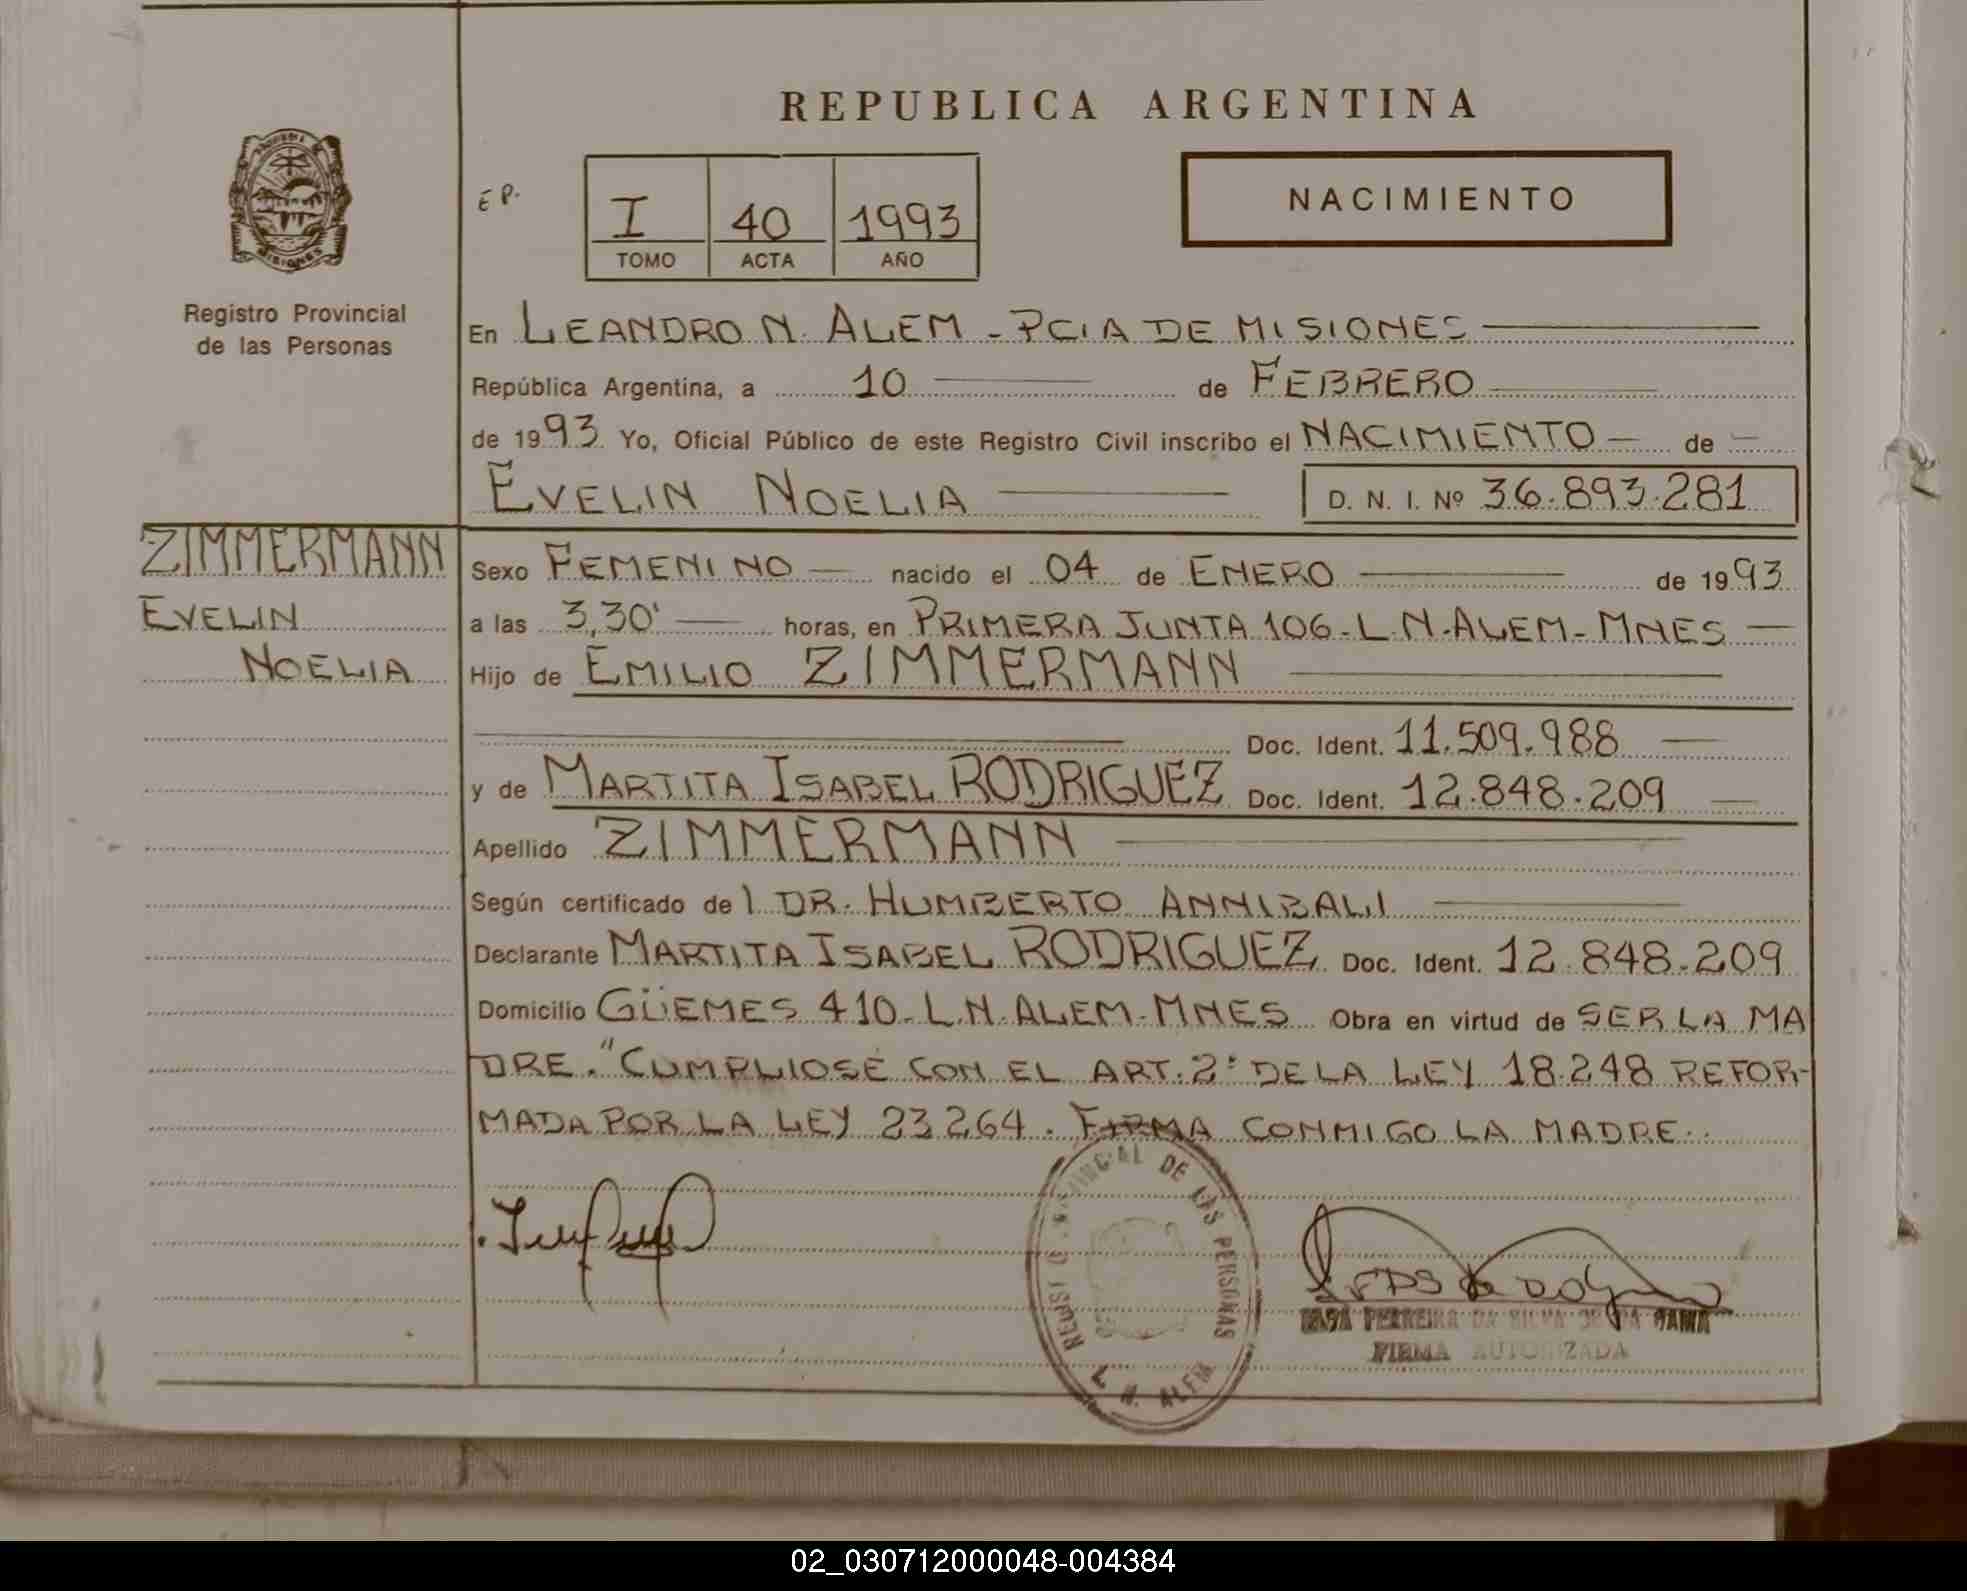 REPUBLICA ARGENTINA
E P.
I 40 1993
TOMO ACTA AÑO
NACIMIENTO
MISIONES
Registro Provincial
de las Personas
En LEANDRO N. ALEM - PCIA DE MISIONES
República Argentina, a 10 de FEBRERO
de 1993 Yo, Oficial Público de este Registro Civil inscribo el NACIMIENTO de
EVELIN NOELIA D. N. I. Nº 36.893.281
ZIMMERMANN
EVELIN
NOELIA
Sexo FEMENINO nacido el 04 de ENERO de 1993
a las 3,30' horas, en PRIMERA JUNTA 106-L.N.ALEM-MNES
Hijo de EMILIO ZIMMERMANN
Doc. Ident. 11.509.988
y de MARTITA ISABEL RODRIGUEZ Doc. Ident. 12.848.209
Apellido ZIMMERMANN
Según certificado del DR. HUMBERTO ANNIBALI
Declarante MARTITA ISABEL RODRIGUEZ Doc. Ident. 12.848.209
Domicilio GÜEMES 410-L.N.ALEM-MNES Obra en virtud de SER LA MA
DRE. "CUMPLIOSE CON EL ART. 2º DE LA LEY 18.248 REFOR-
MADA POR LA LEY 23264. FIRMA CONMIGO LA MADRE.
REGISTRO PROVINCIAL DE LAS PERSONAS
L. N. ALEM
FERREIRA DA SILVA DE DA GAMA
FIRMA AUTORIZADA
02_030712000048-004384